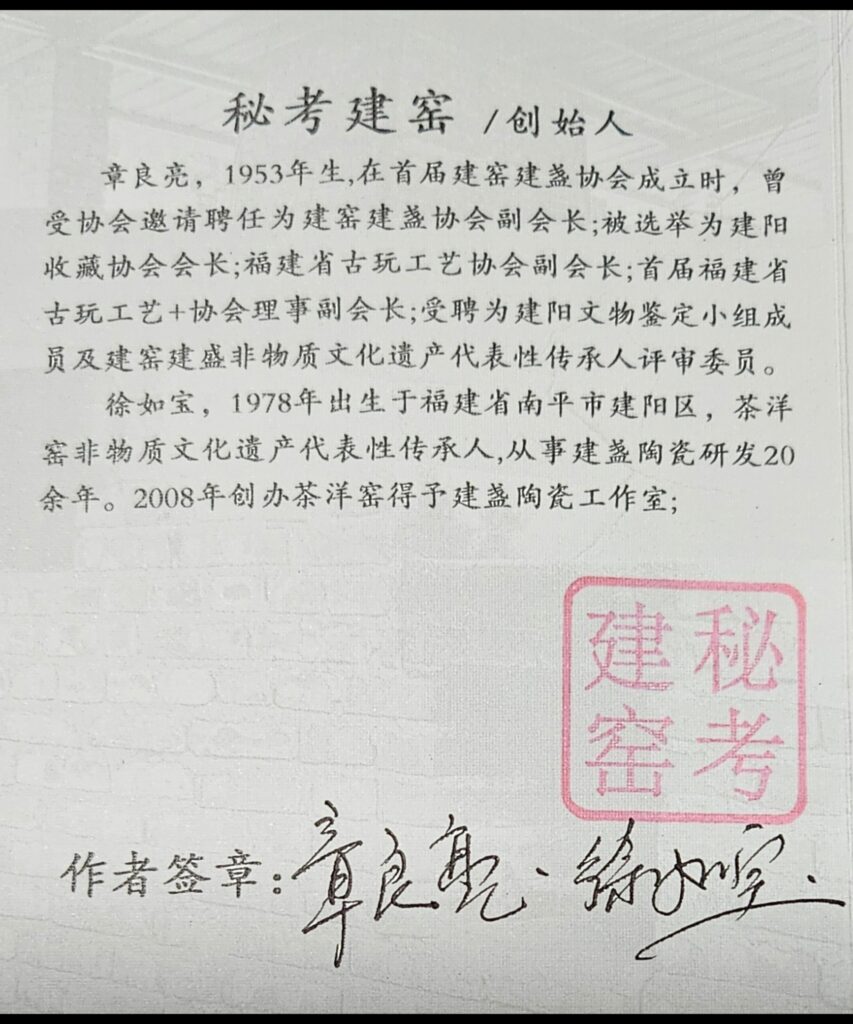 秘考建窑 /创始人
章良亮，1953年生,在首届建窑建盏协会成立时，曾
受协会邀请聘任为建窑建盏协会副会长;被选举为建阳
收藏协会会长;福建省古玩工艺协会副会长;首届福建省
古玩工艺+协会理事副会长;受聘为建阳文物鉴定小组成
员及建窑建盛非物质文化遗产代表性传承人评审委员。
徐如宝，1978年出生于福建省南平市建阳区，茶洋
窑非物质文化遗产代表性传承人,从事建盏陶瓷研发20
余年。2008年创办茶洋窑得予建盏陶瓷工作室;
秘考
建窑
作者签章:章良亮·徐如宝.